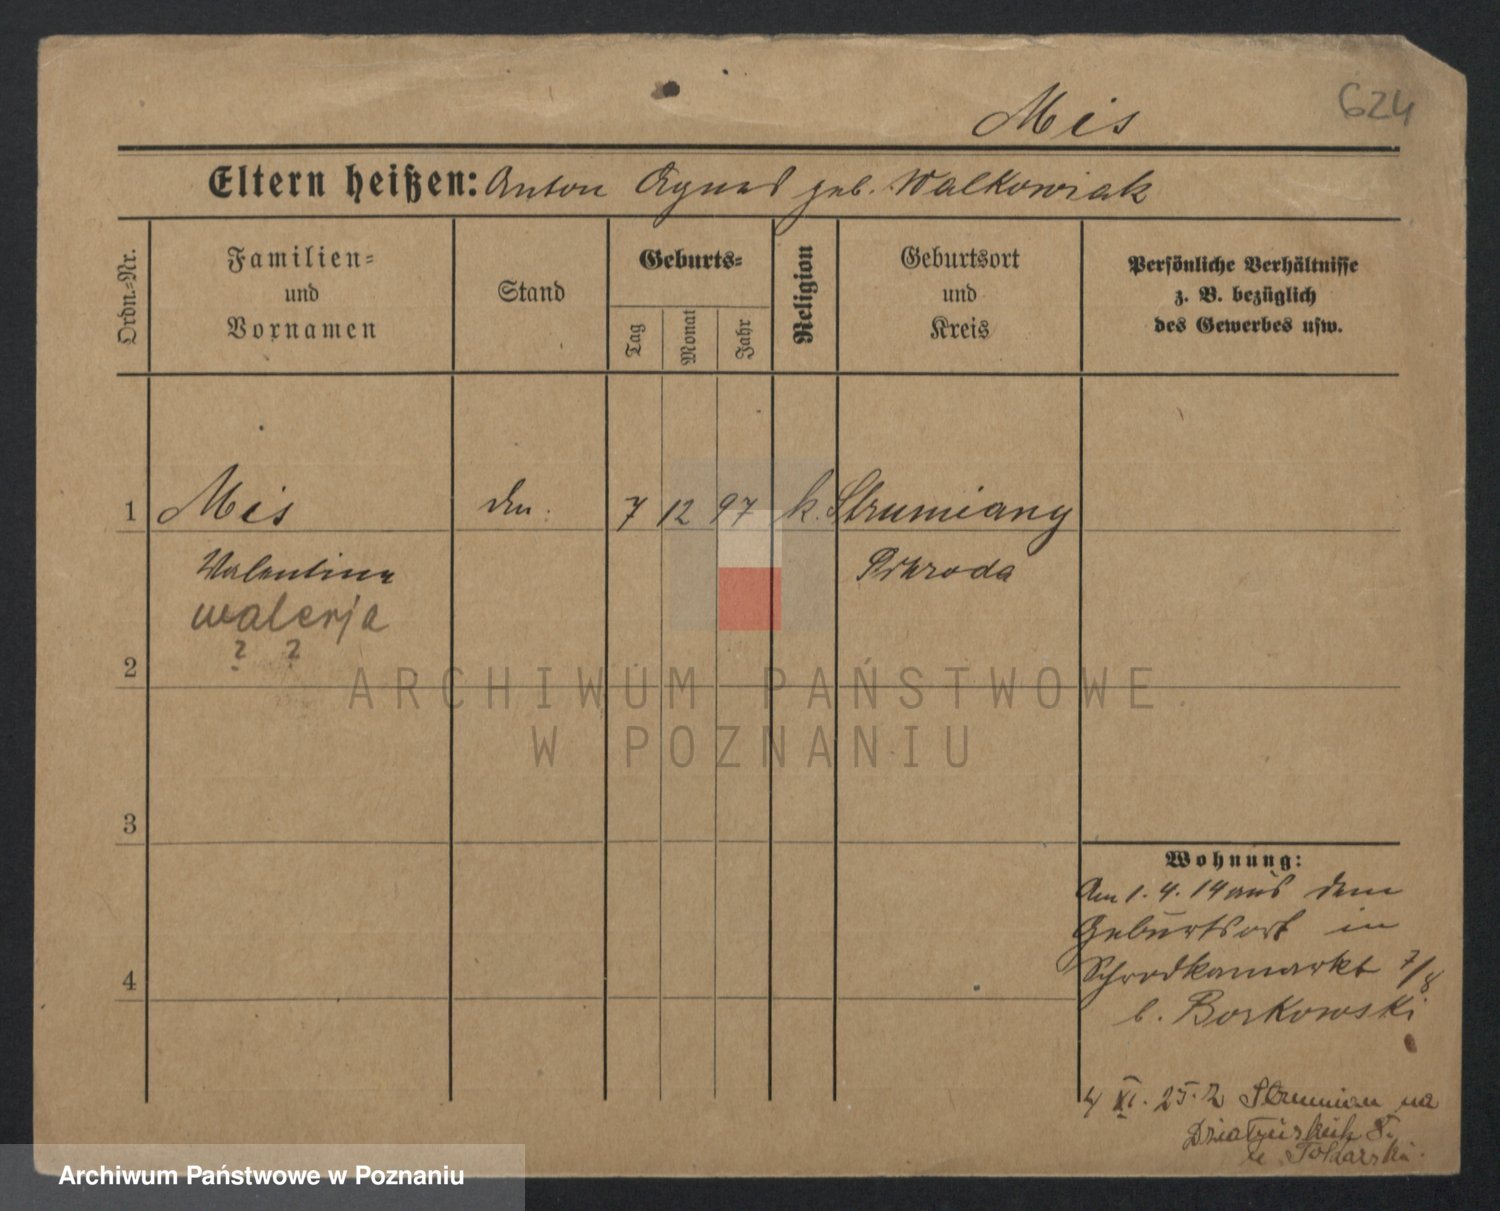 624
Mis
Eltern heißen: Anton Agnes geb. Walkowiak
Ordn.-Nr.
Familien-
und
Vornamen
Stand
Geburts-
Tag
Monat
Jahr
Religion
Geburtsort
und
Kreis
Persönliche Verhältnisse
z. B. bezüglich
des Gewerbes usw.
1 Mis 7 12 97 k. Strumiany
Valentine Schroda
walerja
? ?
2
3
4
Wohnung:
Am 1. 4. 14 aus dem
Geburtsort in
Schrodkamarkt 7/8
b. Borkowski
4 XI. 25. Z Strumian na
8.
u
ARCHIWUM PAŃSTWOWE
W POZNANIU
Archiwum Państwowe w Poznaniu